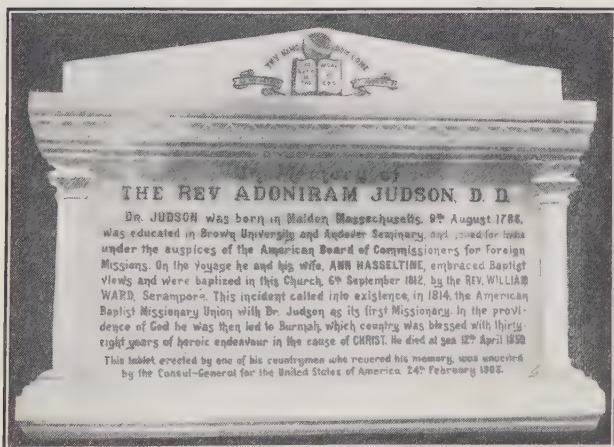 THY KINGDOM COME
In Memory of
THE REV ADONIRAM JUDSON, D. D.
DR. JUDSON was born in Malden Massachusetts. 9th August 1788,
was educated in Brown University and Andover Seminary, and sailed for India
under the auspices of the American Board of Commissioners for Foreign
Missions. On the voyage he and his wife, ANN HASSELTINE, embraced Baptist
views and were baptized in this Church, 6th September 1812, by the REV. WILLIAM
WARD, Serampore. This incident called into existence, in 1814, the American
Baptist Missionary Union with Dr. Judson as its first Missionary. In the provi-
dence of God he was then led to Burmah, which country was blessed with thirty-
eight years of heroic endeavour in the cause of CHRIST. He died at sea 12th April 1850
This tablet erected by one of his countrymen who revered his memory, was unveiled
by the Consul-General for the United States of America 24th February 1903.